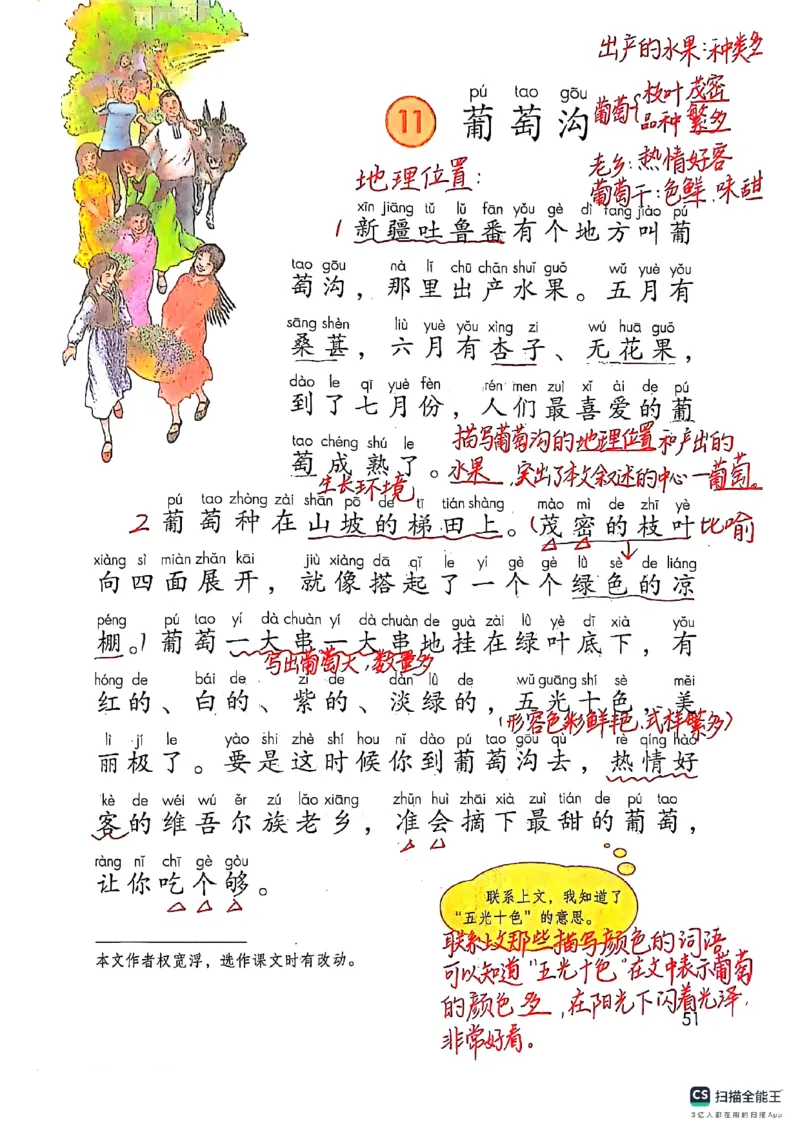 出产的水果：种类多
pú tao gōu
11 葡萄沟
葡萄{枝叶茂密
品种繁多
老乡：热情好客
葡萄干：色鲜味甜
地理位置：
xīn jiāng tǔ lǔ fān yǒu gè dì fang jiào pú
1 新疆吐鲁番有个地方叫葡
tao gōu nà lǐ chū chǎn shuǐ guǒ wǔ yuè yǒu
萄沟，那里出产水果。五月有
sāng shèn liù yuè yǒu xìng zi wú huā guǒ
桑葚，六月有杏子、无花果，
dào le qī yuè fèn rén men zuì xǐ ài de pú
到了七月份，人们最喜爱的葡
tao chéng shú le
萄成熟了。
描写葡萄沟的地理位置和产出的
水果，突出了本文叙述的中心—葡萄。
生长环境
pú tao zhòng zài shān pō de tī tián shàng mào mì de zhī yè
2 葡萄种在山坡的梯田上。(茂密的枝叶 比喻
xiàng sì miàn zhǎn kāi jiù xiàng dā qǐ le yí gè gè lǜ sè de liáng
向四面展开，就像搭起了一个个绿色的凉
péng pú tao yí dà chuàn yí dà chuàn de guà zài lǜ yè dǐ xià yǒu
棚。)葡萄一大串一大串地挂在绿叶底下，有
写出葡萄大，数量多
hóng de bái de zǐ de dàn lǜ de wǔ guāng shí sè měi
红的、白的、紫的、淡绿的，五光十色，美
(形容色彩鲜艳，式样繁多)
lì jí le yào shi zhè shí hou nǐ dào pú tao gōu qù rè qíng hào
丽极了。要是这时候你到葡萄沟去，热情好
kè de wéi wú ěr zú lǎo xiāng zhǔn huì zhāi xià zuì tián de pú tao
客的维吾尔族老乡，准会摘下最甜的葡萄，
ràng nǐ chī gè gòu
让你吃个够。
联系上文，我知道了
“五光十色”的意思。
联系上文那些描写颜色的词语
可以知道“五光十色”在文中表示葡萄
的颜色多，在阳光下闪着光泽，
非常好看。
本文作者权宽浮，选作课文时有改动。
51
CS 扫描全能王
3亿人都在用的扫描App